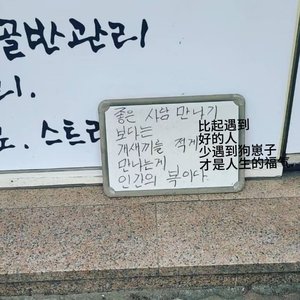 골반관리
니.
도. 스트레
좋은 사람 만나기
보다는
개새끼를 적게
만나는게
인간의 복이다.
比起遇到
好的人
少遇到狗崽子
才是人生的福气